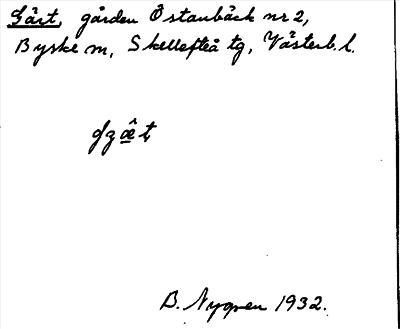 Gärt, gården Östanbäck nr 2,
Byske sn, Skellefteå tg, Västerb. l.
B. Nygren 1932.